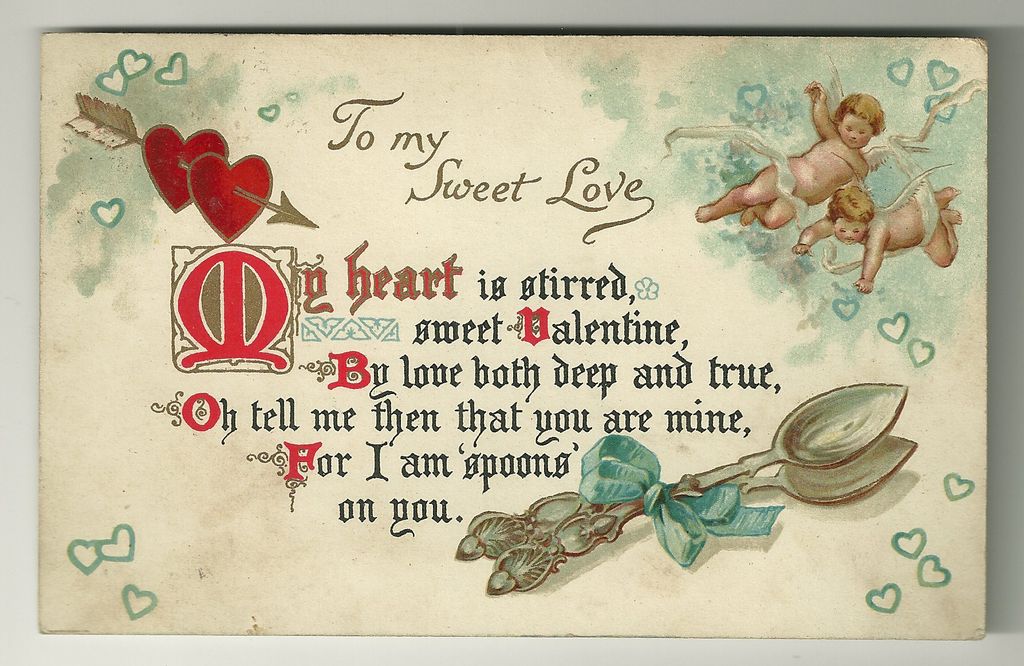 To my
Sweet Love
My heart is stirred,
sweet Valentine,
By love both deep and true,
Oh tell me then that you are mine,
For I am 'spoons'
on you.